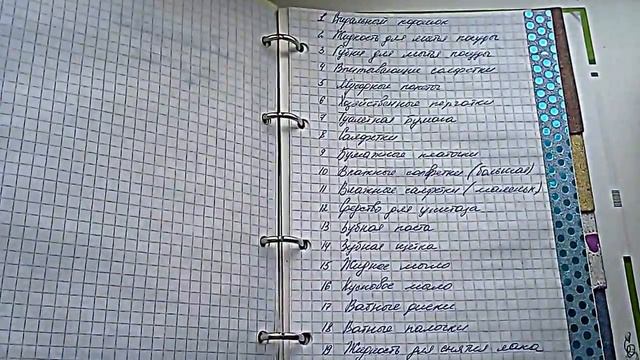 1 Стиральный порошок
2 Жидкость для мытья посуды
3 Губки для мытья посуды
4 Впитывающие салфетки
5 Мусорные пакеты
6 Хозяйственные перчатки
7 Туалетная бумага
8 Салфетки
9 Бумажные платочки
10 Влажные салфетки (большая)
11 Влажные салфетки (маленьк)
12 Средство для унитаза
13 Зубная паста
14 Зубная щетка
15 Жидкое мыло
16 Кусковое мыло
17 Ватные диски
18 Ватные палочки
19 Жидкость для снятия лака